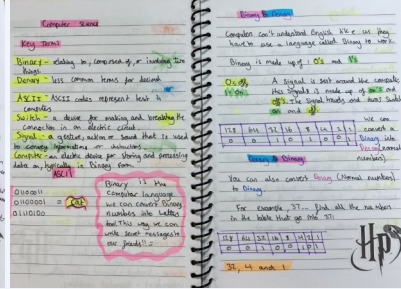 Computer Science
Key Terms
Binary - relating to, comprised of, or involving two
things.
Denary - less common terms for decimal
ASCII - ASCII codes represent text in
computers
Switch - a device for making and breaking the
connection in an electric circuit.
Signal - a gesture, action or sound that is used
to convey information or instructions.
Computer - an electric device for storing and processing
data on, typically in Binary form.
ASCII
0110001
01100001 = Cat
01110100
Binary is the
Computer language
we can convert Binary
numbers into letters
too! This way we can
write secret messages to
our friends!!
Binary & Denary
Computers can't understand English like us they
have to use a language called Binary to work.
Binary is made up of 0's and 1's
0 = off
1 = on
A Signal is sent around the computer
this Signal is made up of on's and
off's. The signal travels and turns switches
on and off.
128 64 32 16 8 4 2 1
0 0 1 0 0 1 0 1
We can
convert a
Binary into
Denary (normal
numbers)
Denary & Binary
You can also convert Denary (Normal numbers)
to Binary.
For example, 37... find all the numbers
in the table that go into 37.
128 64 32 16 8 4 2 1
0 0 1 0 0 1 0 1
32, 4 and 1
HP